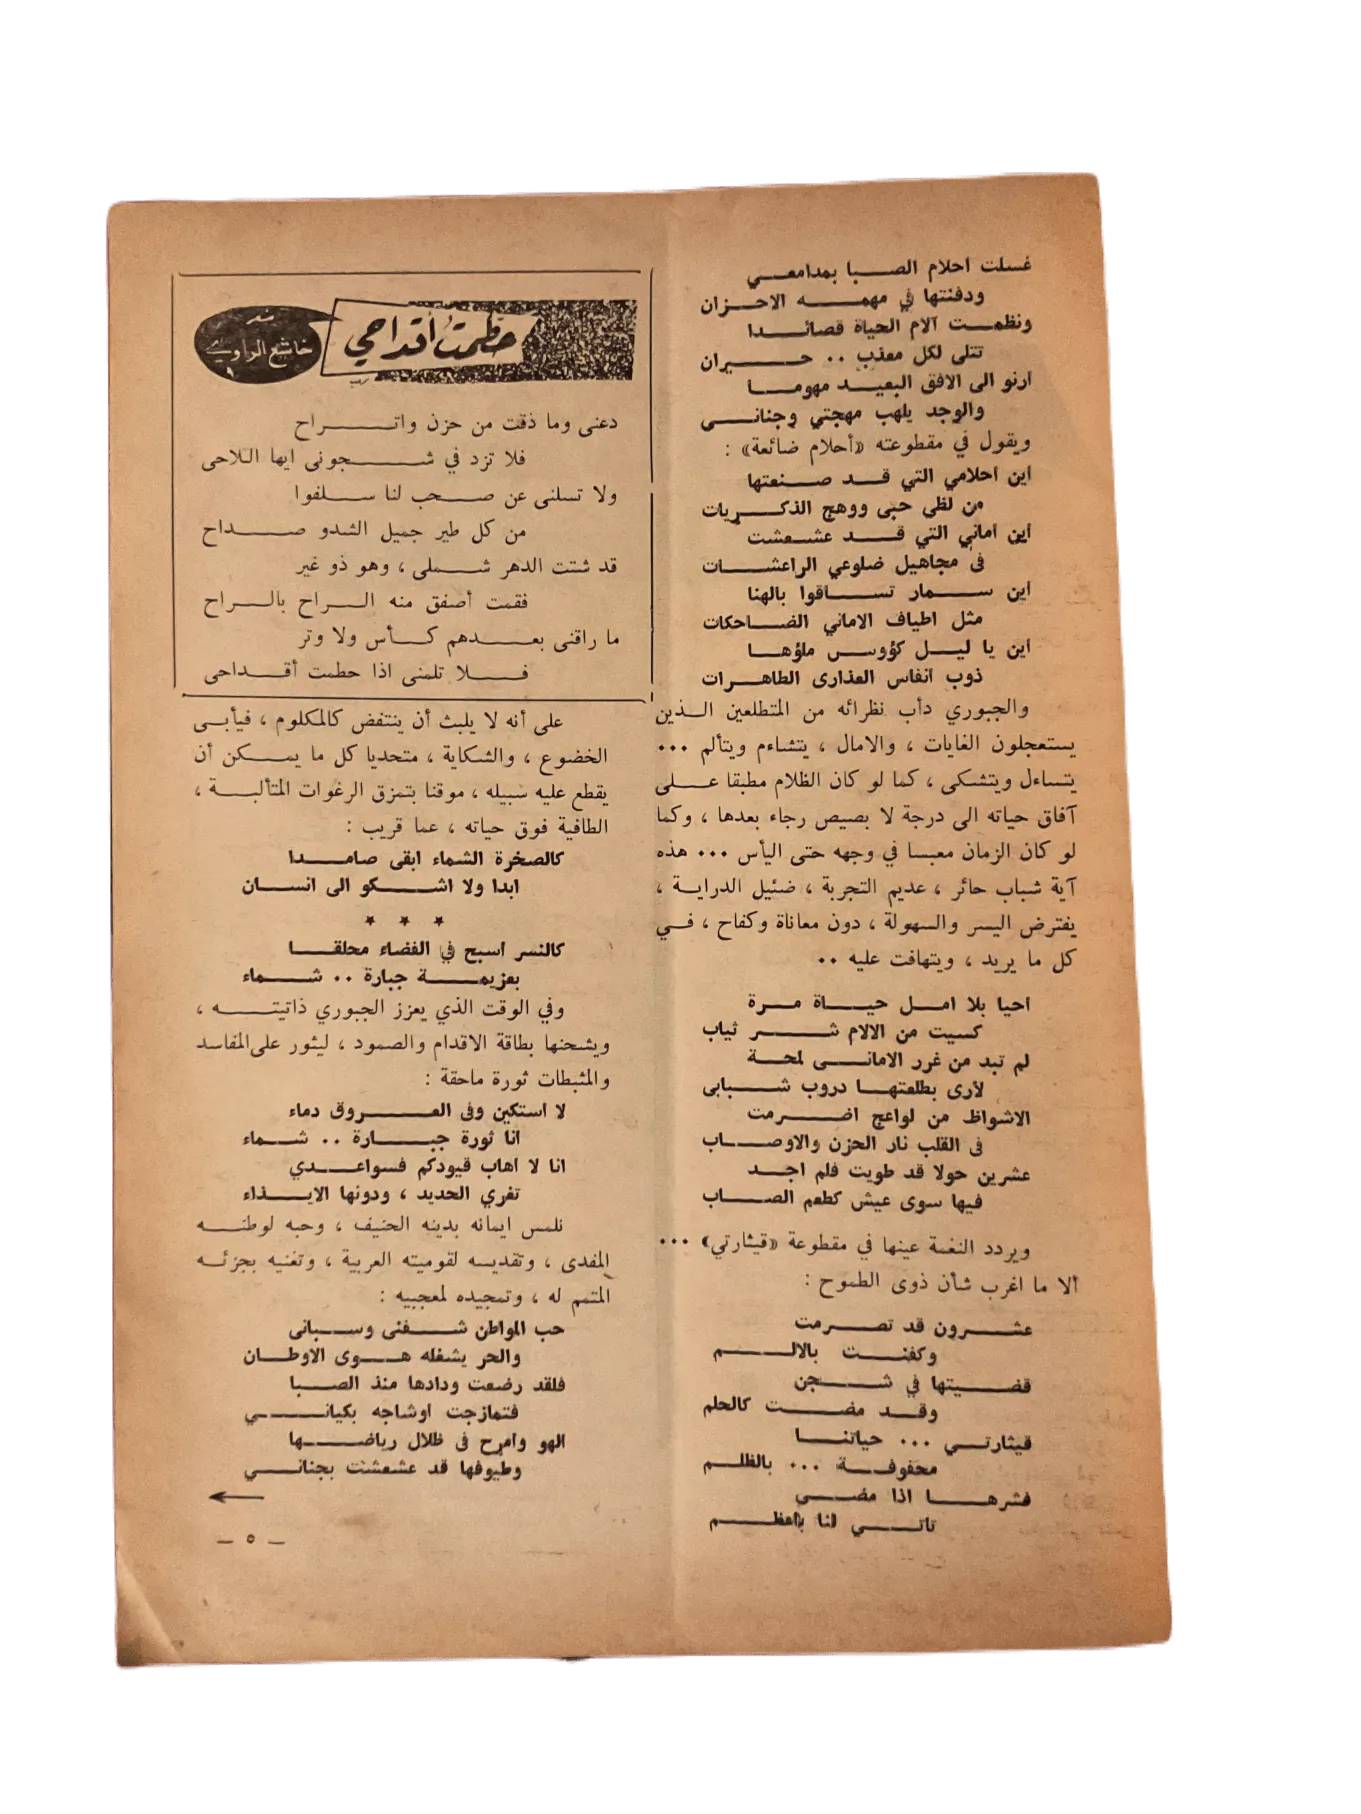 غسلت احلام الصبا بمدامعي
ودفنتها في مهمه الاحزان
ونظمت آلام الحياة قصائدا
تتلى لكل معذب .. حيران
ارنو الى الافق البعيد مهوما
والوجد يلهب مهجتي وجناني
ويقول في مقطوعته «أحلام ضائعة» :
اين احلامي التي قد صنعتها
من لظى حبى ووهج الذكريات
اين اماني التي قد عشعشت
في مجاهيل ضلوعي الراعشات
اين سمار تساقوا بالهنا
مثل اطياف الاماني الضاحكات
اين يا ليل كؤوس ملؤها
ذوب انفاس العذارى الطاهرات
والجبوري دأب نظرائه من المتطلعين الذين
يستعجلون الغايات ، والامال ، يتشاءم ويتألم ...
يتساءل ويتشكى ، كما لو كان الظلام مطبقا على
آفاق حياته الى درجة لا بصيص رجاء بعدها ، وكما
لو كان الزمان معبسا في وجهه حتى اليأس ... هذه
آية شباب حائر ، عديم التجربة ، ضئيل الدراية ،
يفترض اليسر والسهولة ، دون معاناة وكفاح ، في
كل ما يريد ، ويتهافت عليه ..
احيا بلا امل حياة مرة
كسيت من الالام شر ثياب
لم تبد من غرر الاماني لمحة
لارى بطلعتها دروب شبابى
الاشواظ من لواعج اضرمت
في القلب نار الحزن والاوصاب
عشرين حولا قد طويت فلم اجد
فيها سوى عيش كطعم الصاب
ويردد النغمة عينها في مقطوعة «قيثارتي» ...
ألا ما اغرب شأن ذوى الطموح :
عشرون قد تصرمت
وكفنت بالالم
قضيتها في شجن
وقد مضت كالحلم
قيثارتي ... حياتنا
محفوفة ... بالظلم
فشرها اذا مضى
تاتي لنا باعظم
حطمت أقداحي
شعر
خاشع الراوي
دعنى وما ذقت من حزن واتراح
فلا تزد في شجونى ايها اللاحى
ولا تسلنى عن صحب لنا سلفوا
من كل طير جميل الشدو صداح
قد شتت الدهر شملى ، وهو ذو غير
فقمت أصفق منه الراح بالراح
ما راقنى بعدهم كأس ولا وتر
فلا تلمنى اذا حطمت أقداحى
على أنه لا يلبث أن ينتفض كالمكلوم ، فيأبى
الخضوع ، والشكاية ، متحديا كل ما يمكن أن
يقطع عليه سبيله ، موقنا بتمزق الرغوات المتألبة ،
الطافية فوق حياته ، عما قريب :
كالصخرة الشماء ابقى صامدا
ابدا ولا اشكو الى انسان
* * *
كالنسر اسبح في الفضاء محلقا
بعزيمة جبارة .. شماء
وفي الوقت الذي يعزز الجبوري ذاتيته ،
ويشحنها بطاقة الاقدام والصمود ، ليثور على المفاسد
والمثبطات ثورة ماحقة :
لا استكين وفى العروق دماء
انا ثورة جبارة .. شماء
انا لا اهاب قيودكم فسواعدي
تفري الحديد ، ودونها الايذاء
نلمس ايمانه بدينه الحنيف ، وحبه لوطنه
المفدى ، وتقديسه لقوميته العربية ، وتغنيه بجزئه
المتمم له ، وتمجيده لمعجبيه :
حب المواطن شفنى وسبانى
والحر يشغله هوى الاوطان
فلقد رضعت ودادها منذ الصبا
فتمازجت اوشاجه بكياني
الهو وامرح في ظلال رياضها
وطيوفها قد عشعشت بجناني
– ٥ –